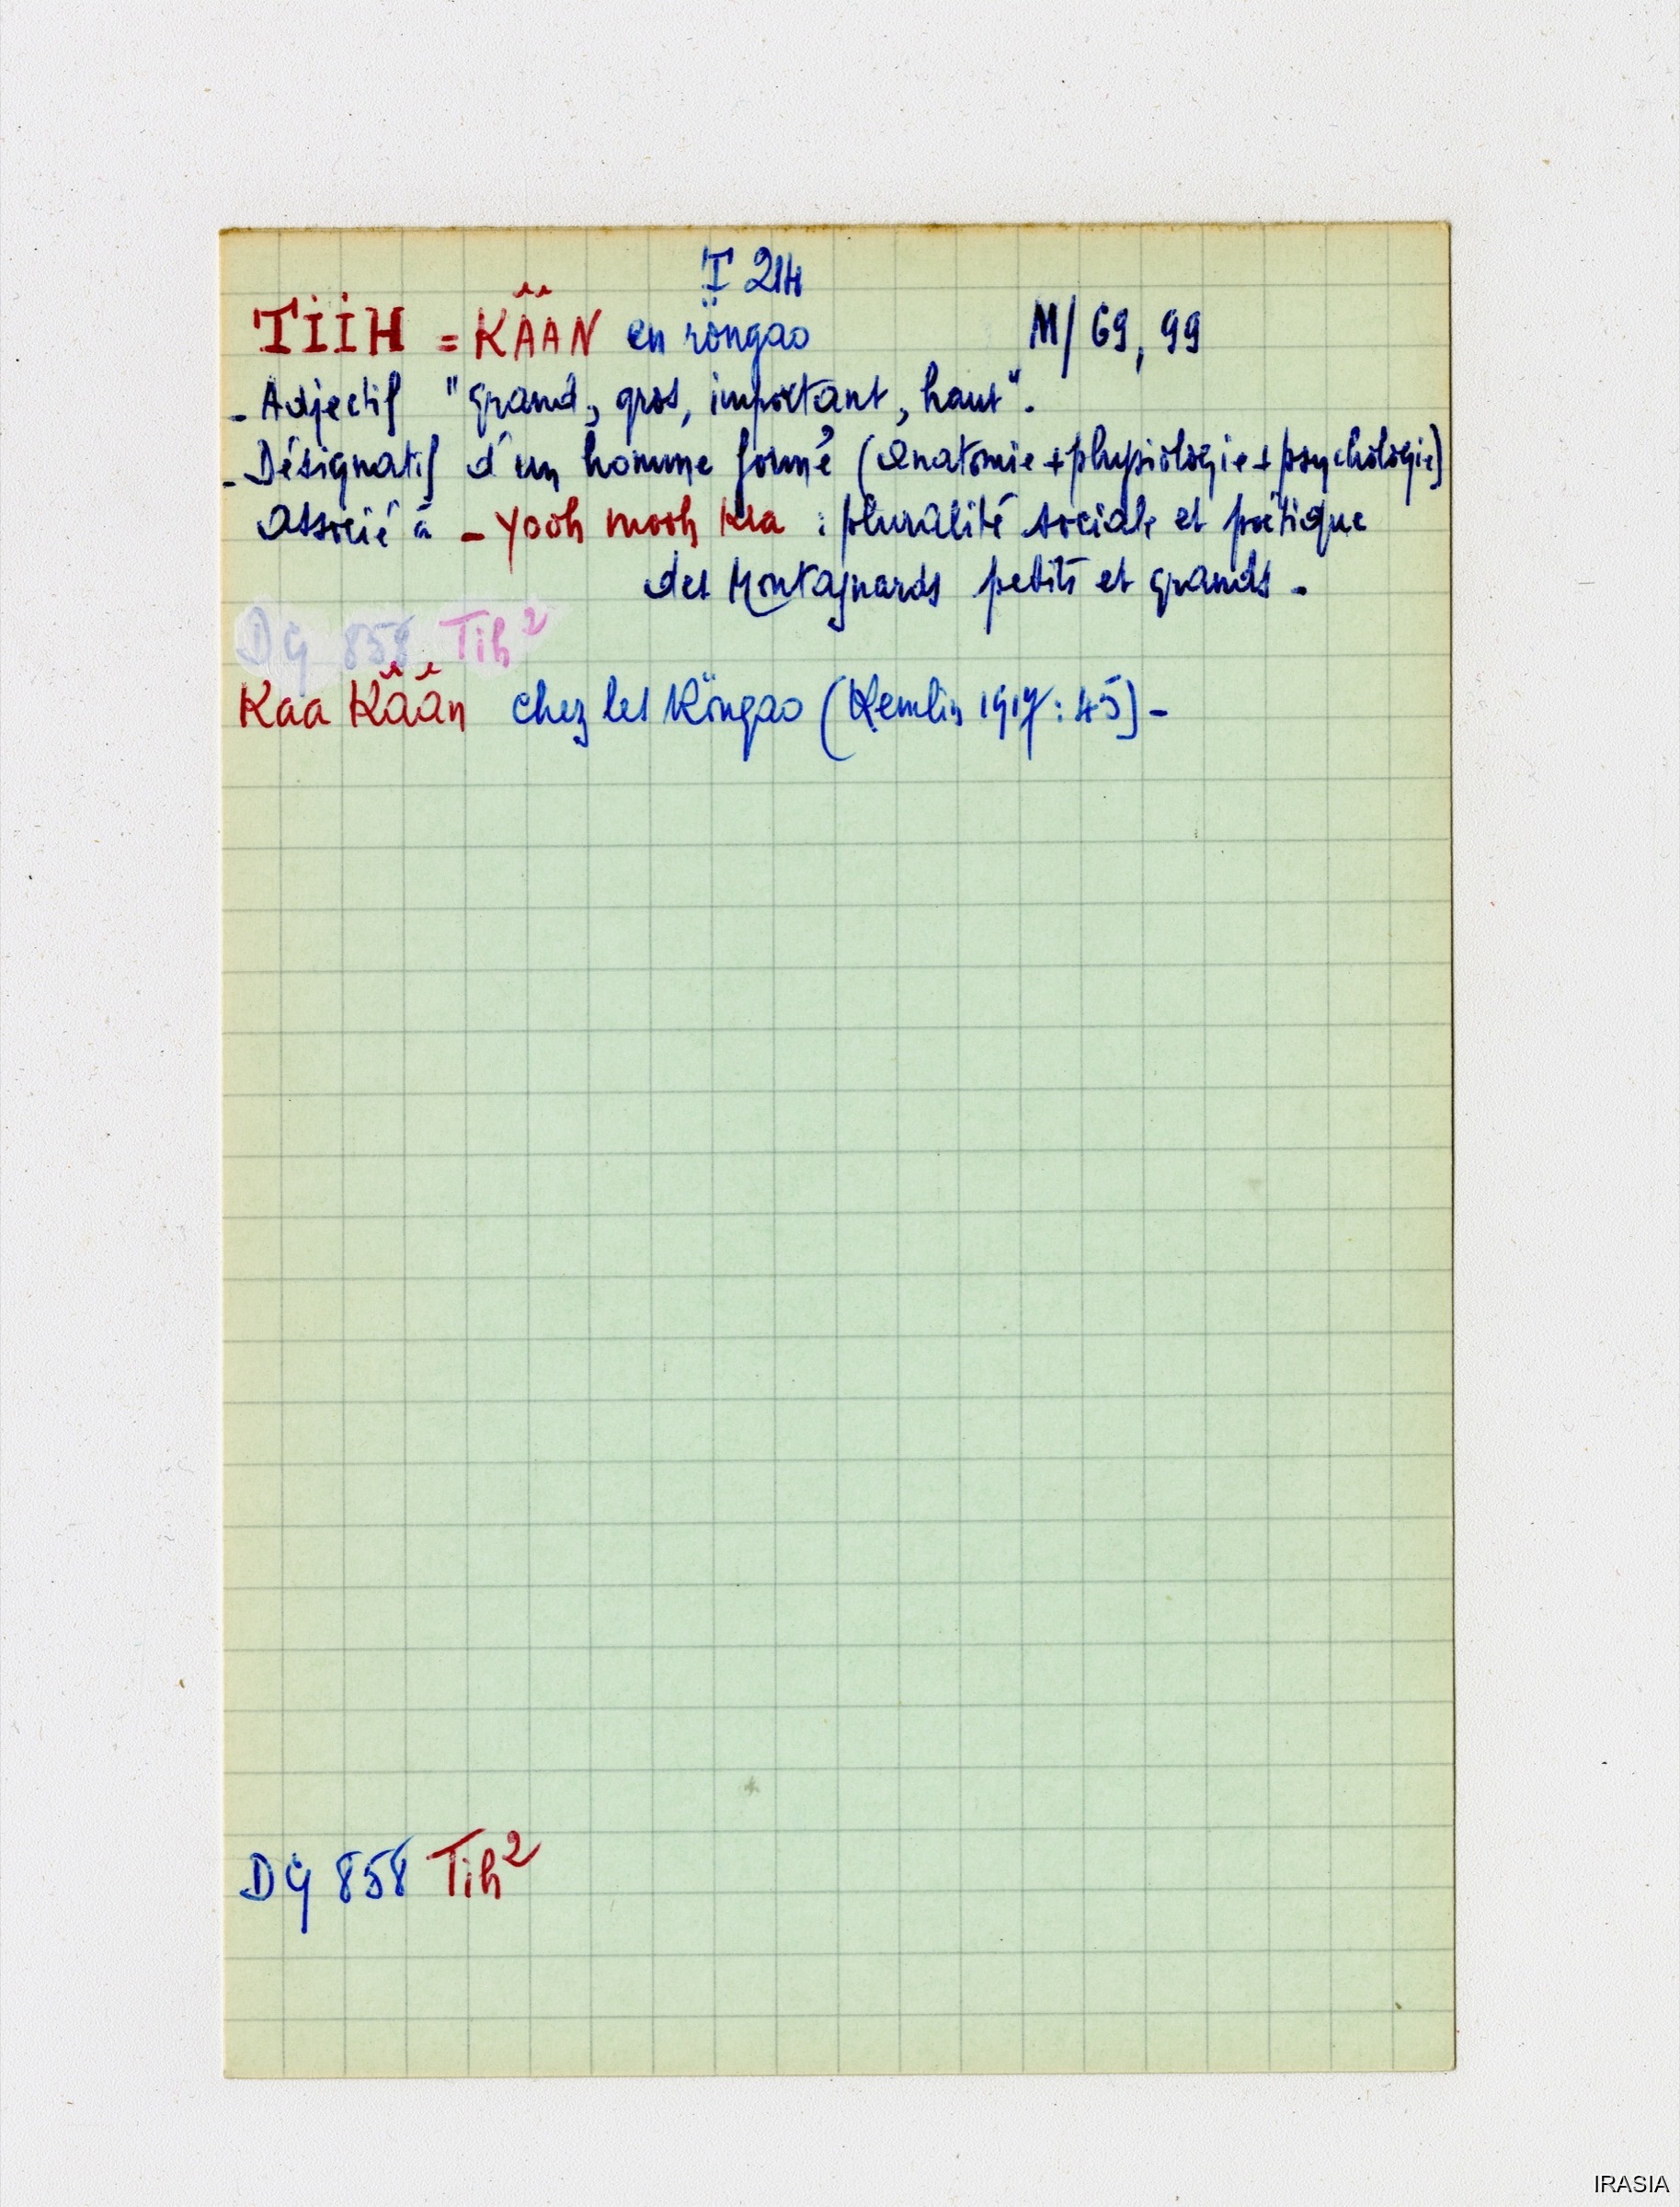 T 214
TIIH = KÂÂN en röngao M/ 69, 99
- Adjectif "grand, gros, important, haut".
- Désignatif d'un homme formé (anatomie + physiologie + psychologie)
associé à - yooh mooh kra : pluralité sociale et poétique
des Montagnards petits et grands -
DG 858 Tih²
Kaa Kâân chez les Röngao (Kemlin 1917 : 45) -
DG 858 Tih²
IRASIA